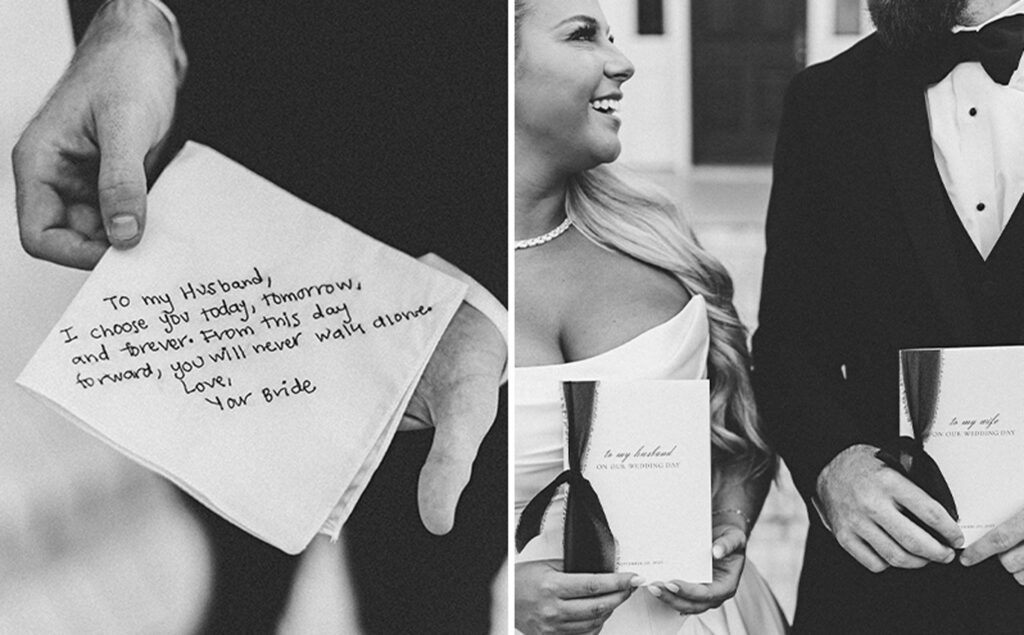 To my Husband,
I choose you today, tomorrow,
and forever. From this day
forward, you will never walk alone.
Love,
Your Bride
to my husband
ON OUR WEDDING DAY
to my wife
ON OUR WEDDING DAY